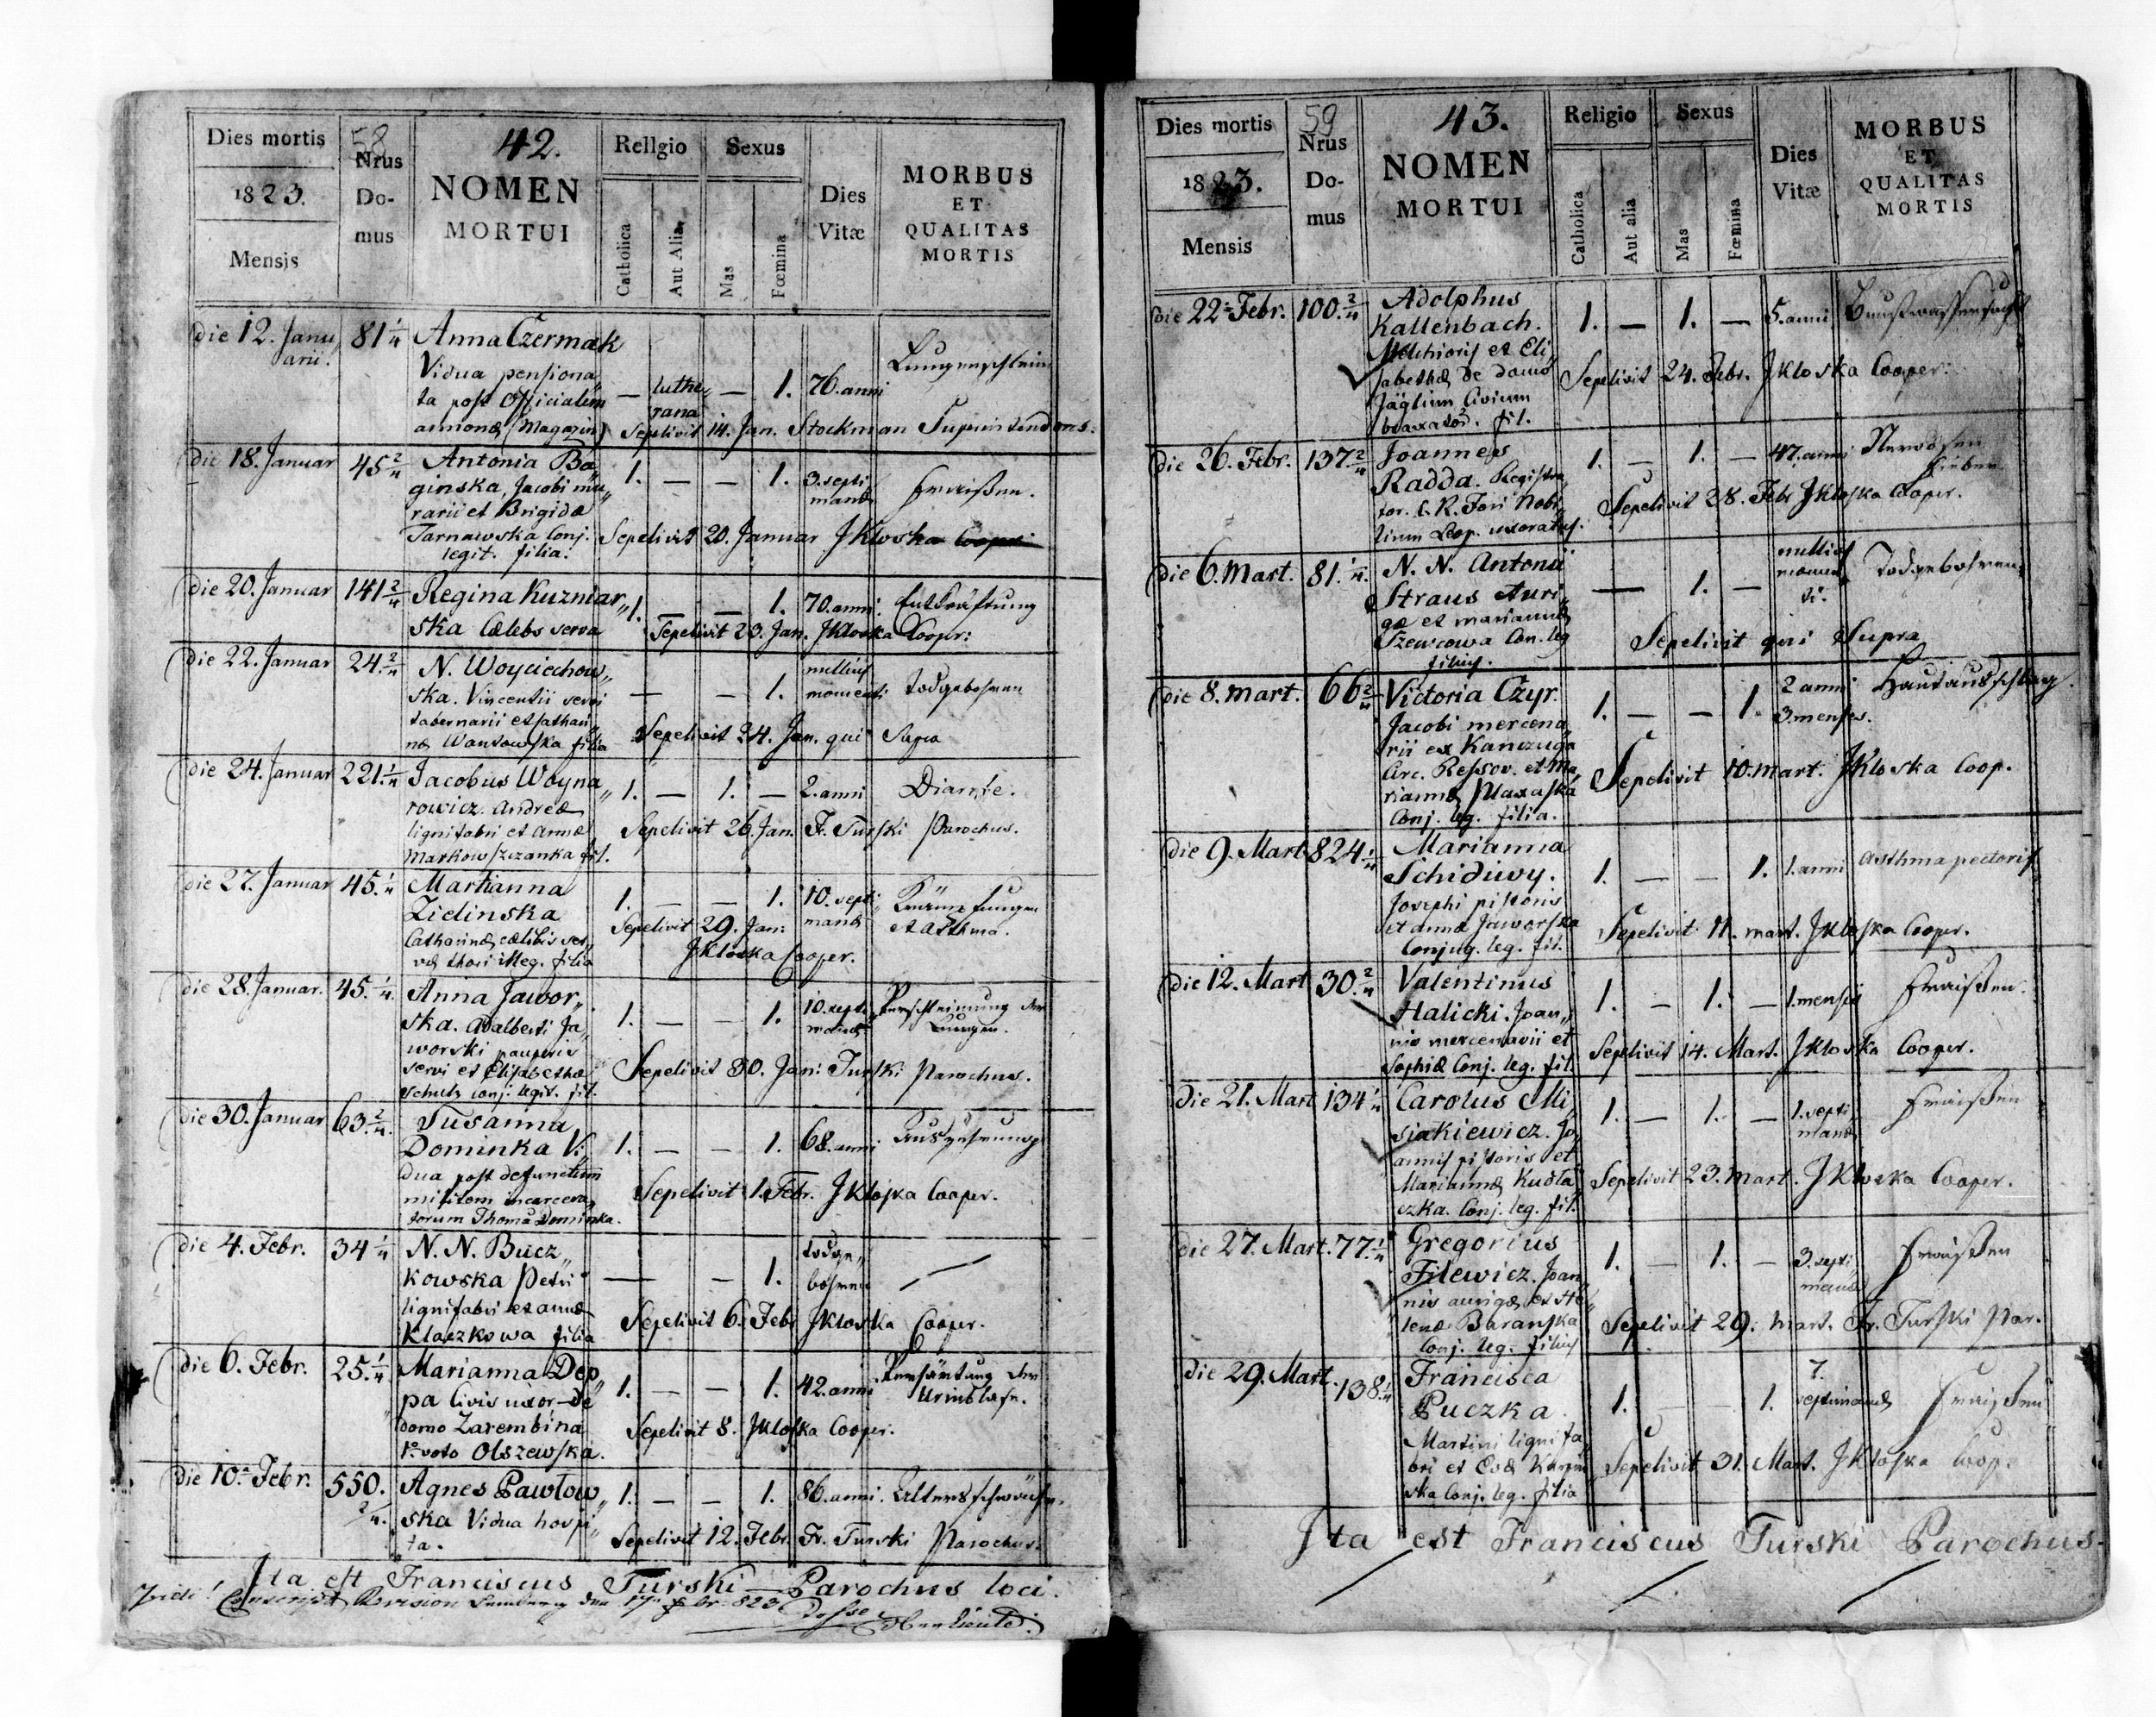 Dies mortis
1823.
Mensis
58
Nrus
Do-
mus
42.
NOMEN
MORTUI
Rellgio
Catholica
Aut Alia
Sexus
Mas
Fœmina
Dies
Vitæ
MORBUS
ET
QUALITAS
MORTIS
die 12. Janu„
arii.
81 1/4
Anna Czermak
Vidua pensiona„
ta post Officialem
annonæ (Magazin)
— luthe„ — 1. 76. anni
rana
Sepelivit 14. Jan. Stockman Superintendens.
die 18. Januar 45 2/4
Antonia Ba„
ginska, Jacobi mu„
rarii et Brigidæ
Tarnawska Conj.
legit. filia.
1. — — 1. 3. septi„
manæ
Fraißen.
Sepelivit 20. Januar JKloska Cooper
die 20. Januar 141 2/4
Regina Kuzniar„
ska Cælebs serva
1. — — 1. 70. anni. Entkräftung
Sepelivit 23. Jan. JKloska Cooper:
die 22. Januar 24. 2/4
N. Woyciechow„
ska. Vincentii servi
tabernarii et Cathari„
næ Wantowska filia
— — 1. nullius
momenti
todgebohren
Sepelivit 24. Jan. qui Supra
die 24. Januar 221. 1/4
Jacobus Woyna„
rowicz. Andreæ
lignifabri et Annæ
Markowszczanka fil.
1. — 1. — 2. anni Diarrhe.
Sepelivit 26. Jan. Fr. Turski Parochus.
die 27. Januar 45. 1/4
Martianna
Zielinska
Catharinæ cælibis ser„
væ thori illeg. filia
1. — — 1. 10. septi„
manæ
et Asthma.
Sepelivit 29. Jan:
JKloska Cooper.
die 28. Januar. 45. 1/4.
Anna Jawor„
ska. Adalberti Ja„
worski pauperis
servi et Elisabethæ
Schultz conj. legit. fil.
1. — — 1. 10. septi„
manæ
Verschleimung der
Lungen.
Sepelivit 30. Jan: Turski Parochus.
die 30. Januar 63. 2/4.
Susanna
Dominka Vi„
dua post defunctum
militem incarcera„
torum Thoma Dominka.
1. — — 1. 68. anni Auszehrung
Sepelivit 1. Febr. JKloska Cooper.
die 4. Febr. 34 1/4
N. N. Bucz„
kowska Petri
lignifabri et annæ
Klaczkowa filia
— — 1. todge„
bohren
—
Sepelivit 6. Febr JKloska Cooper.
die 6. Febr. 25. 1/4
Marianna Dep„
pa Civis uxor de
domo Zarembina
1º voto Olszewska.
1. — — 1. 42. anni Verhärtung der
Urinblase.
Sepelivit 8. JKloska Cooper.
die 10. Febr. 550.
2/4.
Agnes Pawłow„
ska Vidua hospi„
ta.
1. — — 1. 86. anni. Altersschwäche.
Sepelivit 12. Febr. Fr. Turski Parochus.
Ita est Franciscus Turski — Parochus loci.
Vidi! Conscript. Revision Lemberg den 17. Febr. 823
Dies mortis
1823.
Mensis
59
Nrus
Do-
mus
43.
NOMEN
MORTUI
Religio
Catholica
Aut alia
Sexus
Mas
Fœmina
Dies
Vitæ
MORBUS
ET
QUALITAS
MORTIS
die 22. Febr. 100. 2/4
Adolphus
Kallenbach.
Melchioris et Eli„
sabethæ de domo
Jäglinn Civium
braxator. fil.
1. — 1. — 5. anni Brustwassersucht
Sepelivit 24. Febr. JKloska Cooper.
die 26. Febr. 137. 2/4
Joannes
Radda. Registra„
tor. C. R. Fori Nobi„
lium Leop. uxoratus.
1. — 1. — 47. anni Nervösen
Fieber
Sepelivit 28. Febr JKloska Cooper.
die 6. Mart. 81. 1/4.
N. N. Antonii
Straus Auri„
gæ et mariannæ
Szewcowa Con. leg
filius.
— 1. — nullius
momen„
ti.
Todgebohren
Sepelivit qui Supra
die 8. mart. 66 2/4
Victoria Czyr.
Jacobi mercena„
rii ex Kanczuga
Circ. Ressov. et Ma„
riannæ
Conj. leg. filia.
1. — — 1. 2 anni
3. menses.
Hautausschlag.
Sepelivit 10. mart. JKloska Coop.
die 9. Mart. 824 1/4
Marianna
Schiduwy.
Josephi pistoris
et annæ Jaworska
Conjug. leg. fil.
1. — — 1. 1. anni Asthma pectoris
Sepelivit 11. mart. JKloska Cooper.
die 12. Mart 30. 2/4
Valentinus
Halicki. Joan„
nis mercenarii et
Sophiæ Conj. leg. fil.
1. — 1. — 1. mensis Fraißen.
Sepelivit 14. Mart. JKloska Cooper.
die 21. Mart 134 1/4
Carolus Mi„
siakiewicz. Jo„
annis pistoris et
Mariannæ Kudła„
czka. Conj. leg. fil.
1. — 1. — 1. septi„
manæ
Fraißen
Sepelivit 23. mart. JKloska Cooper.
die 27. Mart. 77. 1/4
Gregorius
Filewicz. Joan„
nis aurigæ et He„
lenæ Baranska
Conj. leg. filius
1. — 1. — 3. septi„
manæ
Fraißen
Sepelivit 29. mart. Fr. Turski Par.
die 29. Mart. 138 1/4
Francisca
Puczka
Martini lignifa„
bri et Evæ
ska Conj. leg. filia
1. — — 1. 7.
septimanæ
Fraißen
Sepelivit 31. Mart. JKloska Coop.
Ita est Franciscus Turski Parochus.